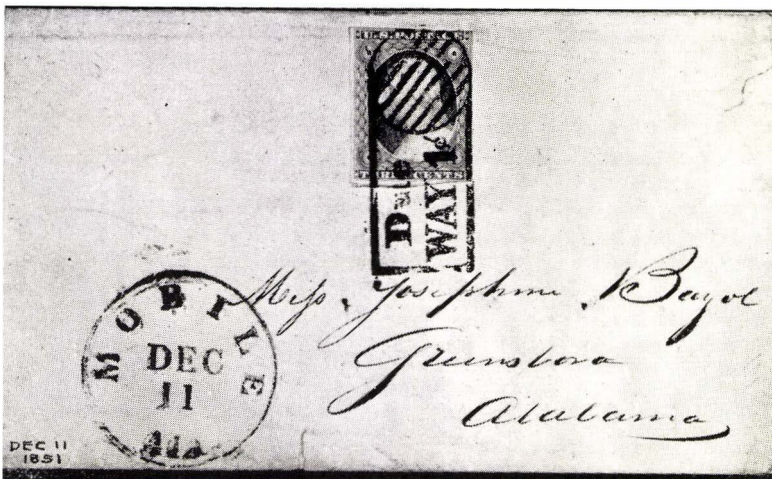 THREE CENTS
Due
WAY 1
MOBILE
DEC
11
Ala
Miss. Josephine Bayol
Greensboro
Alabama
DEC 11
1851